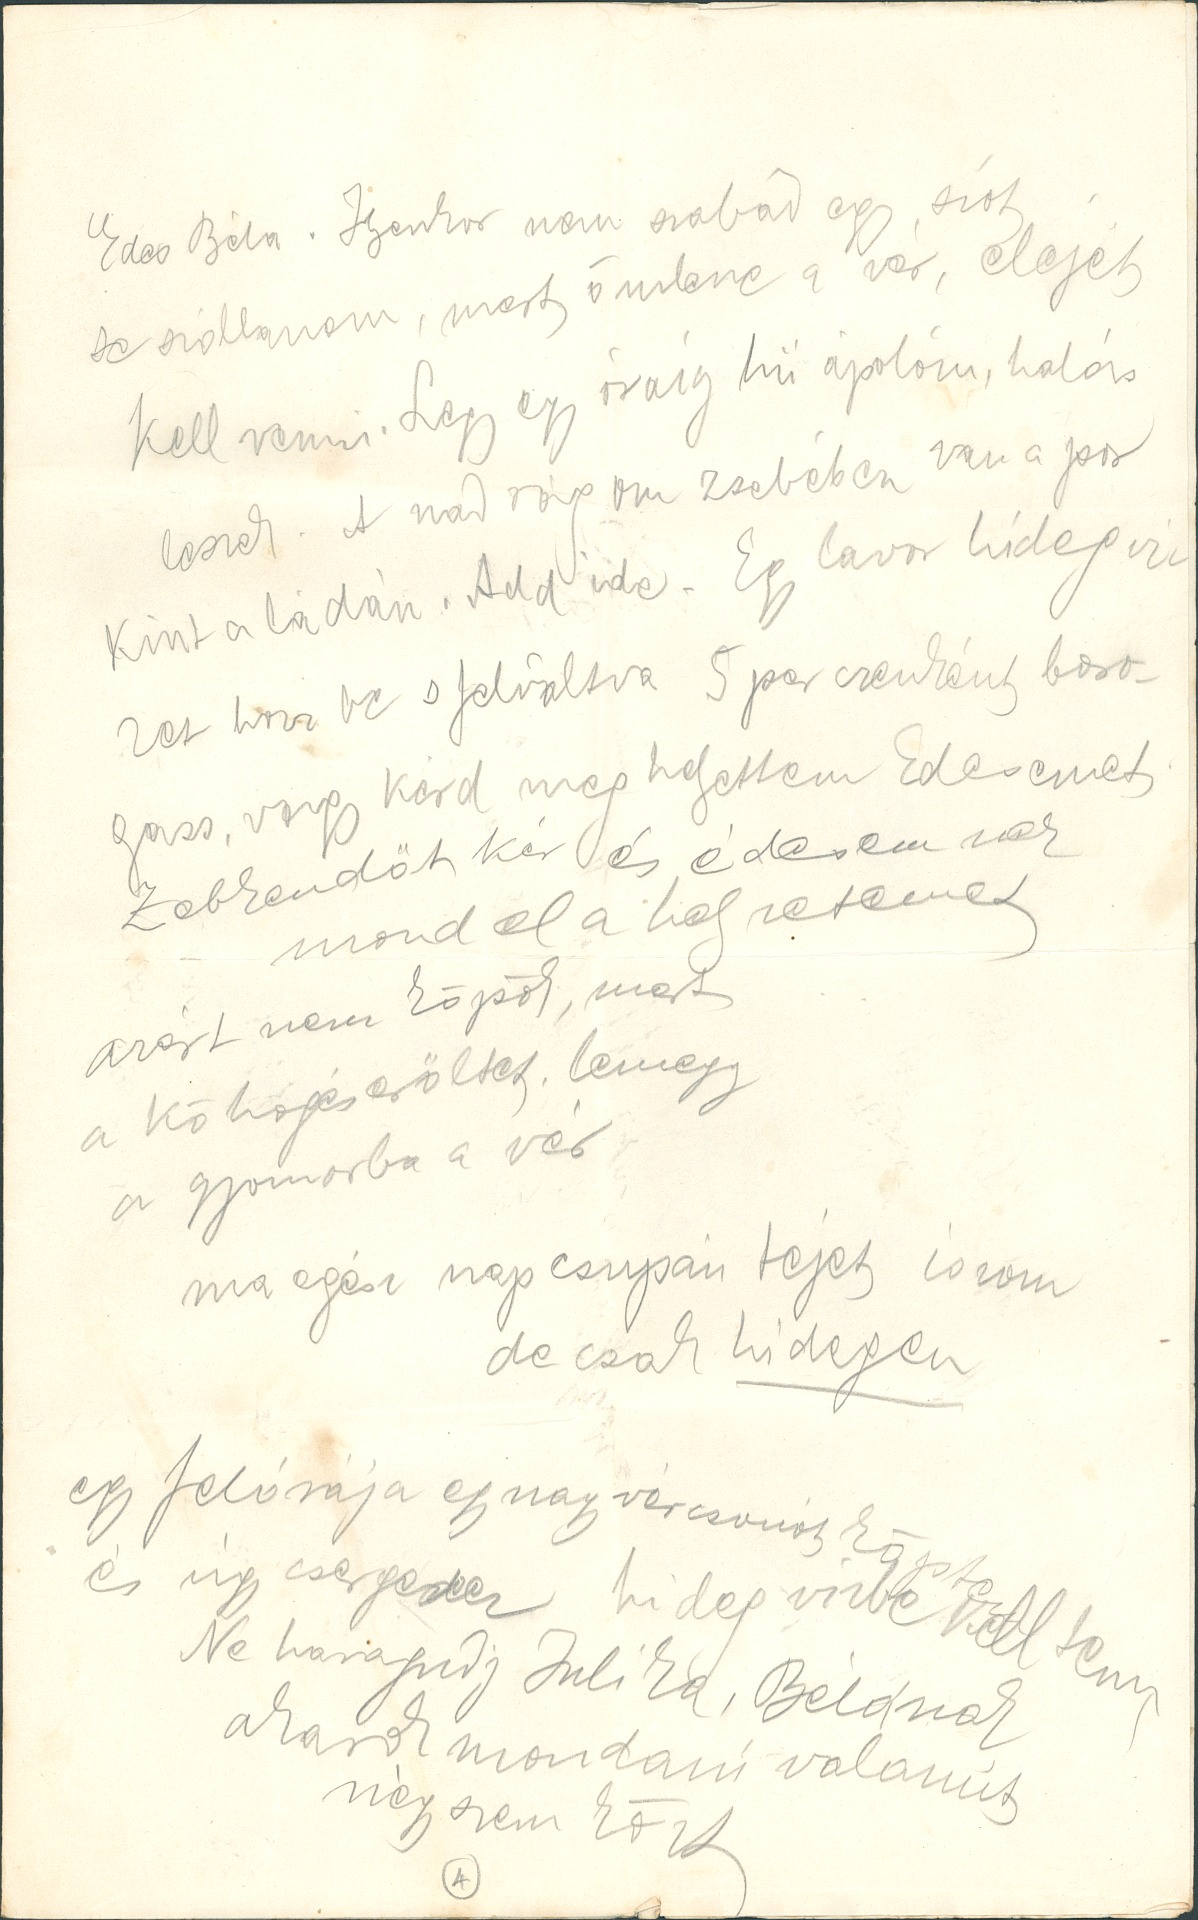 Édes Béla. Ilyenkor nem szabad egy szót
se szóllanom, mert ömlene a vér, elejét
kell venni. Légy egy óráig hű ápolóm, hálás
leszek. A nadrágom zsebében van a por
kint a ládán. Add ide. Egy lavor hideg vi
zet hozz be s felváltva 5 perczenként boro-
gass, vagy kérd meg helyettem Édesemet
Zsebkendőt kér és édesem nak
mond el a helyzetemet
azért nem köpök, mert
a köhögés erőltet, lemegy
a gyomorba a vér
ma egész nap csupán tejet iszom
de csak hidegen
egy félórája egy nagy vércsomót köptem
és úgy csergedez hideg vizbe kell tenni
Ne haragudj Juliska, Bélának
akarok mondani valamit
négyszem közt
4